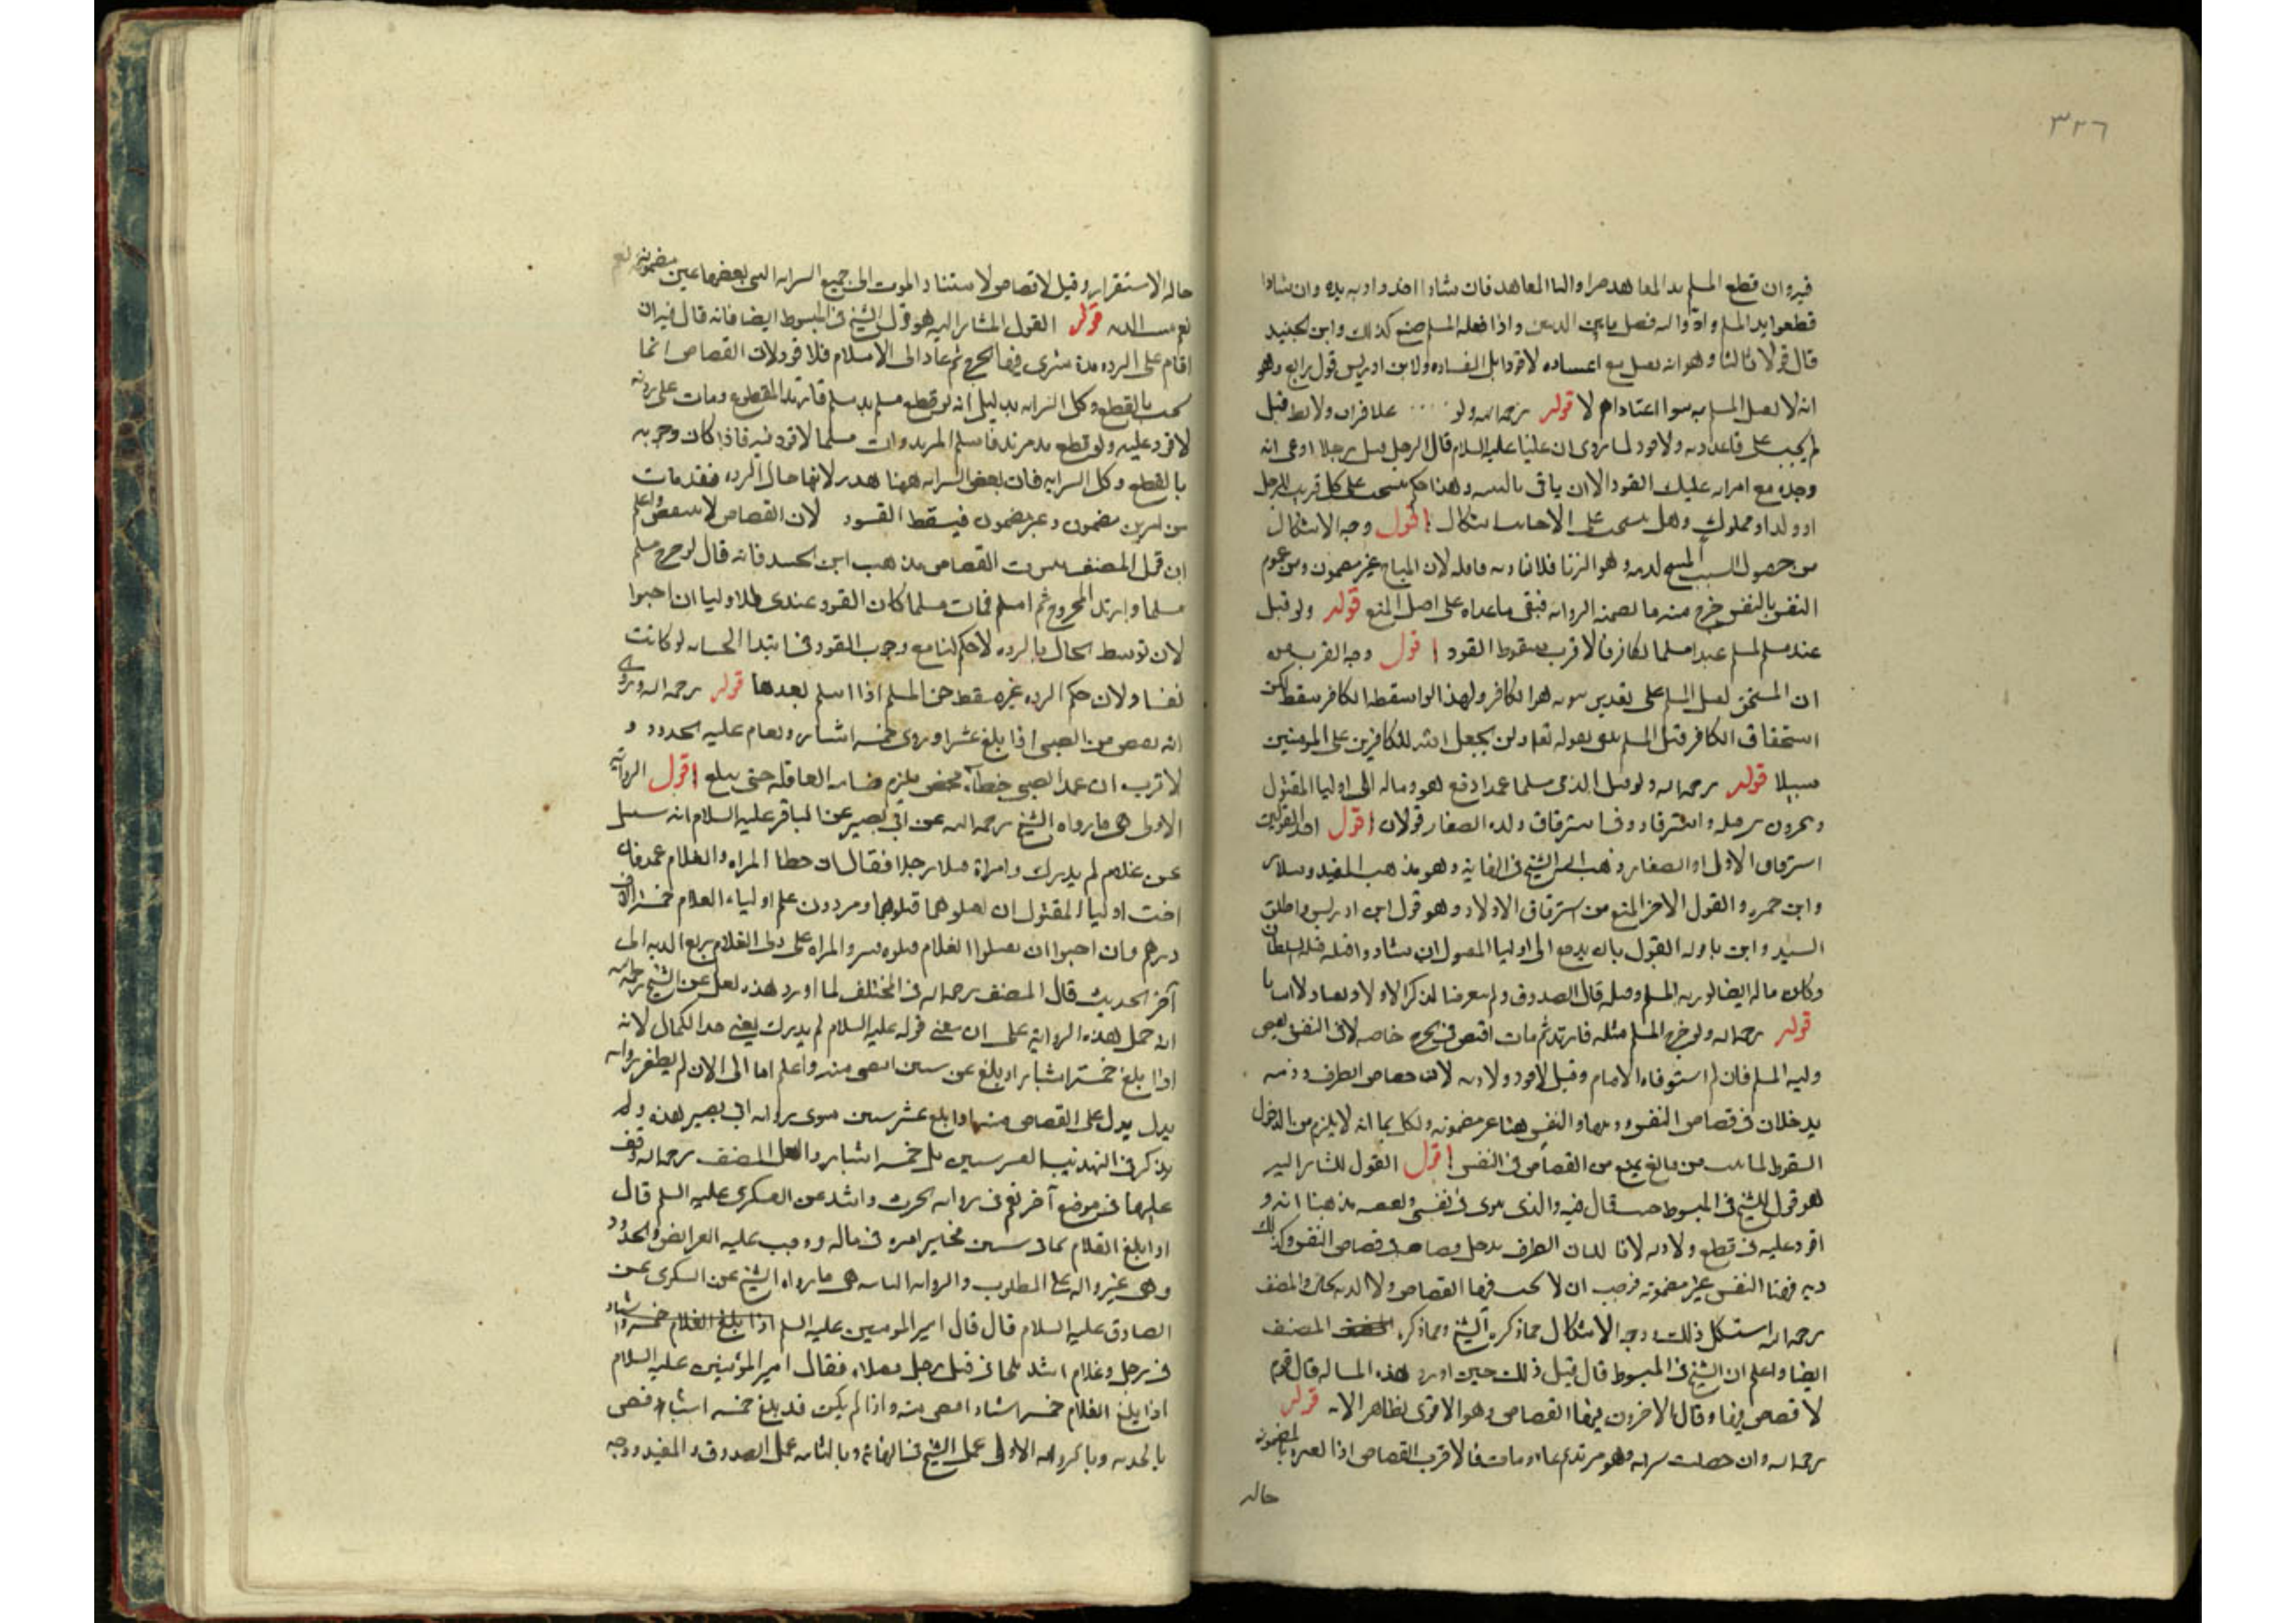 ٣٢٦
فيه وان قطع المسلم يد المعاهد صرا والىا المعاهد فان شاوا اخذوا دية يده وان شاوا
قطعوا يد المسلم وادوا اليه فضل ما بين الديتين واذا قتله المسلم صنع كذلك وابن الجنيد
قال قولا ثالثا وهو انه يقتل مع اعتياده لا قودا بل لفساده ولابن ادريس قول رابع وهو
انه لا يقتل المسلم به سوا اعتاد ام لا قوله رحمه الله ولو علا فراب ولا بط قتل
لم يجب على قاعد دية ولا قود لما روى ان عليا عليه السلام قال لرجل قتل رجلا ادعى انه
وجده مع امراته عليك القود الا ان ياتى بالبينه وهذا حكم يستحب على كل قريب للرجل
او ولد او مملوك وهل يستحب على الاجانب اشكال اقول وجه الاشكال
من حصول السبب المبيح لدمه وهو الزنا فلا قاد به قاتله لان المباح غير مضمون ومن عموم
النفس بالنفس خرج منه ما تضمنه الرواية فبقى ما عداه على اصل المنع قوله ولو قتل
عبد مسلم لمسلم عبدا مسلما لكافر فالاقرب سقوط القود اقول وجه القرب
ان المستحق لقتل المسلم على تقدير ثبوته هو الكافر ولهذا لو اسقطه الكافر سقط لكن
استحقاق الكافر قتل المسلم منفى بقوله تعالى ولن يجعل الله للكافرين على المومنين
سبيلا قوله رحمه الله ولو قتل الذمى مسلما عمدا دفع هو وماله الى اوليا المقتول
ويخيرون بين قتله واسترقاقه وفى استرقاق ولده الصغار قولان اقول احد القولين
استرقاق الاولاد الصغار وذهب اليه الشيخ فى النهاية وهو مذهب المفيد وسلار
وابن حمزه والقول الاخر المنع من استرقاق الاولاد وهو قول ابن ادريس واطلق
السيد وابن بابويه القول بان يدفع الى اوليا المقتول ان شاوا قتله قتله السلطان
وكان ماله ايضا لورثة المسلم ومثله قال الصدوق ولم يتعرضا لذكر الاولاد
قوله رحمه الله ولو جرح المسلم مثله فارتد ثم مات اقتص فى الجرح خاصه لا فى النفس يقتص
وليه المسلم فان لم استوفاه الامام وقيل لا قود ولا دية لان قصاص الطرف وديته
يدخلان فى قصاص النفس وديتها والنفس هنا غير مضمونه ويشكل بما انه لا يلزم من الدخول
السقوط لما ثبت من مانع يمنع من القصاص فى النفس اقول القول المشار اليه
هو قول الشيخ فى المبسوط حيث قال فيه والذى يقوى فى نفسى ويقتضيه مذهبنا انه
لا قود عليه فى قطع ولا دية لانا لدينا ان الطرف يدخل قصاصه فى قصاص النفس وكذلك
ديته وهنا النفس غير مضمونه فوجب ان لا يجب فيها القصاص ولا الدية بحال والمصنف
رحمه الله استشكل ذلك ووجه الاشكال مما ذكره الشيخ ومما ذكره المصنف
ايضا واعلم ان الشيخ فى المبسوط قال قبل ذلك حين اورد هذه المساله قال قوم
لا قصاص فيها وقال الاخرون فيها القصاص وهو الاقوى لظاهر الايه قوله
رحمه الله وان حصلت سراية وهو مرتد ثم عاد ومات فالاقرب القصاص اذا العبره بالمضمونه
حاله
حاله الاستقرار وقيل لا قصاص لاستناد الموت الى جميع السراية التى بعضها غير مضمونه نعم
نعم تثبت الدية قوله القول المشار اليه هو قول الشيخ فى المبسوط ايضا فانه قال فيه ان
اقام على الرده مدة تسرى فيها الجرح ثم عاد الى الاسلام فلا قود لان القصاص انما
يجب بالقطع وكل السراية بدليل انه لو قطع مسلم يد مسلم فارتد المقطوع ومات على ردته
لا قود عليه ولو قطع يد مرتد فاسلم المرتد ومات مسلما لا قود فيه فاذا كان وجوبه
بالقطع وكل السرايه فان بعض السراية ههنا هدر لانها حال الرده فقد مات
من امرين مضمون وغير مضمون فيسقط القود لان القصاص لا يتبعض واعلم
ان قبل المصنف بثبوت القصاص مذهب ابن الجنيد فانه قال لو جرح مسلم
مسلما وارتد المجروح ثم اسلم فمات مسلما كان القود عندى لاوليا ان احبوا
لان توسط الحال بالرده لا حكم لها مع وجوب القود فى ابتدا الجنايه لو كانت
نفسا ولان حكم الرده غير مسقط حق المسلم اذا اسلم بعدها قوله رحمه الله وروى
انه يقتص من الصبى اذا بلغ عشرا وروى خمسه اشبار وتقام عليه الحدود و
الاقرب ان عمد الصبى خطا محض يلزم ضمانه العاقله حتى يبلغ اقول الرواية
الاولى هى ما رواه الشيخ رحمه الله عن ابى بصير عن الباقر عليه السلام انه سئل
عن غلام لم يدرك وامراة قتلا رجلا فقال ان خطا المراه والغلام عمد فان
احب اوليا المقتول ان يقتلوهما قتلوهما ويردون على اولياء الغلام خمسة الاف
درهم وان احبوا ان يقتلوا الغلام قتلوه وترد المراه على ولى الغلام ربع الدية الى
آخر الحديث قال المصنف رحمه الله فى المختلف لما اورد هذه نقل عن الشيخ رحمه الله
انه حمل هذه الرواية على ان معنى قوله عليه السلام لم يدرك يعنى حد الكمال لانه
اذا بلغ خمسة اشبار او بلغ عشر سنين اقتص منه واعلم انا الى الان لم نظفر برواية
تدل على القصاص منه اذا بلغ عشر سنين سوى رواية ابى بصير هذه ولم
يذكر فى التهذيب العشر سنين بل خمسه اشبار ولعل المصنف رحمه الله وقف
عليها فى موضع آخر نعم فى رواية الحسن ابن راشد عن العسكرى عليه السلم قال
اذا بلغ الغلام ثمانى سنين فجايز امره فى ماله ووجب عليه الفرايض والحدود
وهى غير دالة على المطلوب والرواية الثانيه هى ما رواه الشيخ عن السكونى عن
الصادق عليه السلام قال قال امير المومنين عليه السلم اذا بلغ الغلام خمسة اشبار
فى رجل وغلام اشتركا فى قتل رجل فقتلاه فقال امير المؤمنين عليه السلام
اذا بلغ الغلام خمسه اشبار اقتص منه واذا لم يكن قد بلغ خمسه اشبار قضى
بالدية وبالرواية الاولى عمل الشيخ فى النهاية وبالثانيه عمل الصدوق والمفيد ووجه